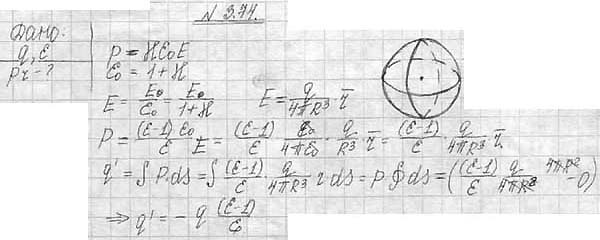 N 3.74.
Дано:
q, ε
Pr - ?
P = ϰε₀E
ε₀ = 1 + ϰ
E = E₀/ε₀ = E₀/(1+ϰ)    E = q/(4πR³) · r̄
P = (ε-1)ε₀/ε E = (ε-1)/ε · ε₀/(4πε₀) · q/R³ · r̄ = (ε-1)/ε · q/(4πR³) r̄.
q' = ∫ P·ds = ∫ (ε-1)/ε · q/(4πR³) r ds = P ∮ ds = ((ε-1)/ε q/(4πR²) 4πR² - 0)
⇒ q' = - q (ε-1)/ε